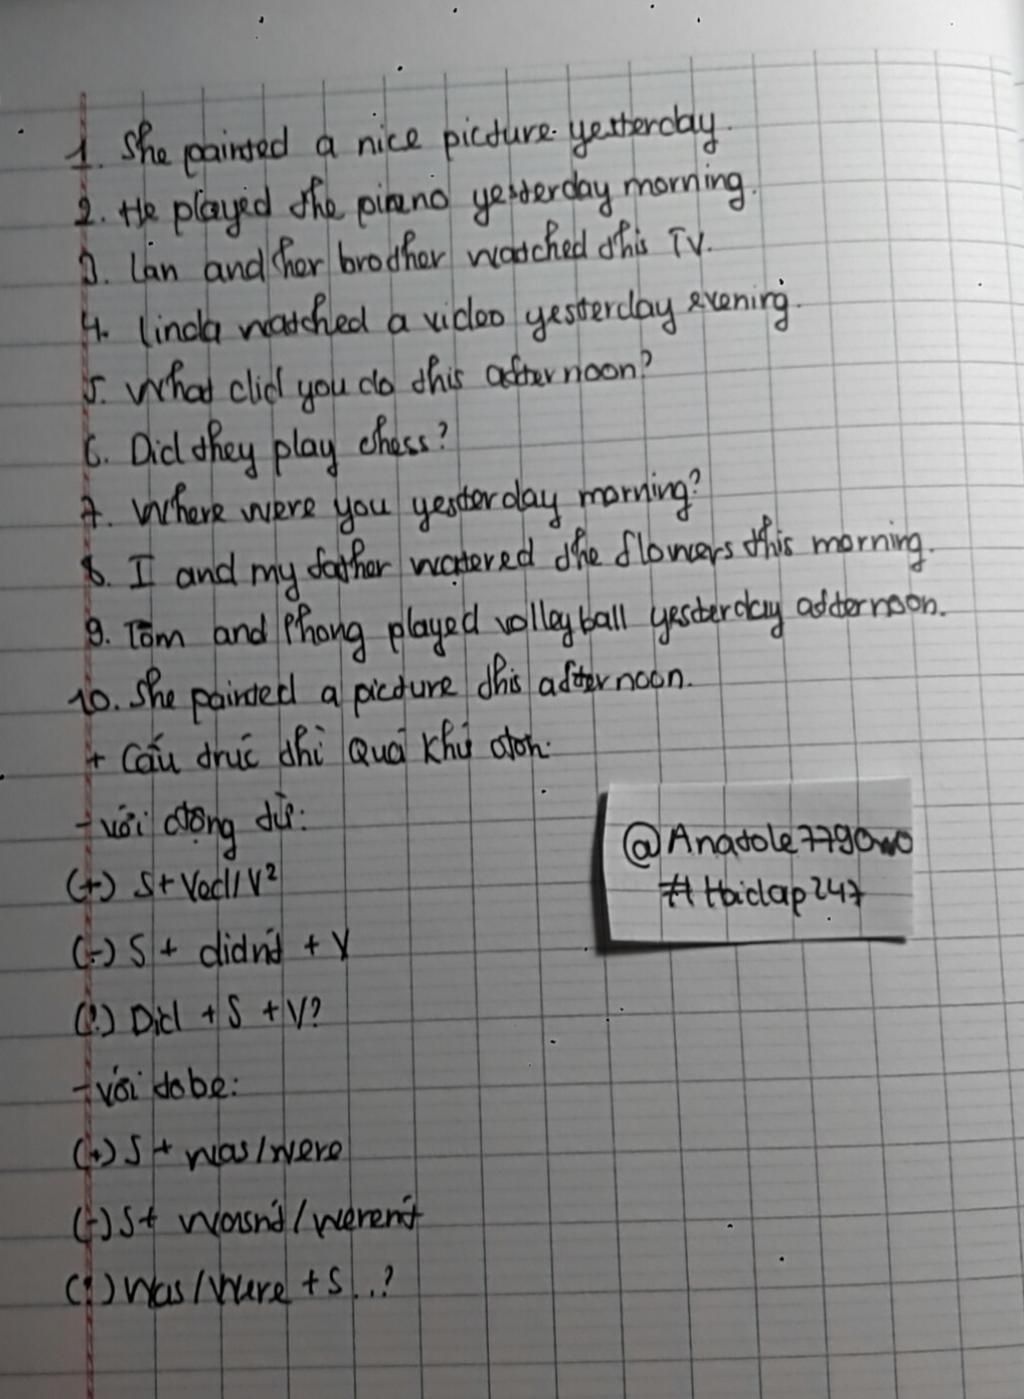 1. She painted a nice picture yesterday.
2. He played the piano yesterday morning.
3. Lan and her brother watched this TV.
4. Linda watched a video yesterday evening.
5. What did you do this afternoon?
6. Did they play chess?
7. Where were you yesterday morning?
8. I and my father watered the flowers this morning.
9. Tom and Phong played volleyball yesterday afternoon.
10. She painted a picture this afternoon.
+ Cấu trúc thì Quá khứ đơn:
- với động từ:
(+) S + Ved/V2
(-) S + didn't + V
(?) Did + S + V?
- với tobe:
(+) S + was/were
(-) S + wasn't/weren't
(?) Was/Were + S...?
@Anatole779owo
#Hoidap247